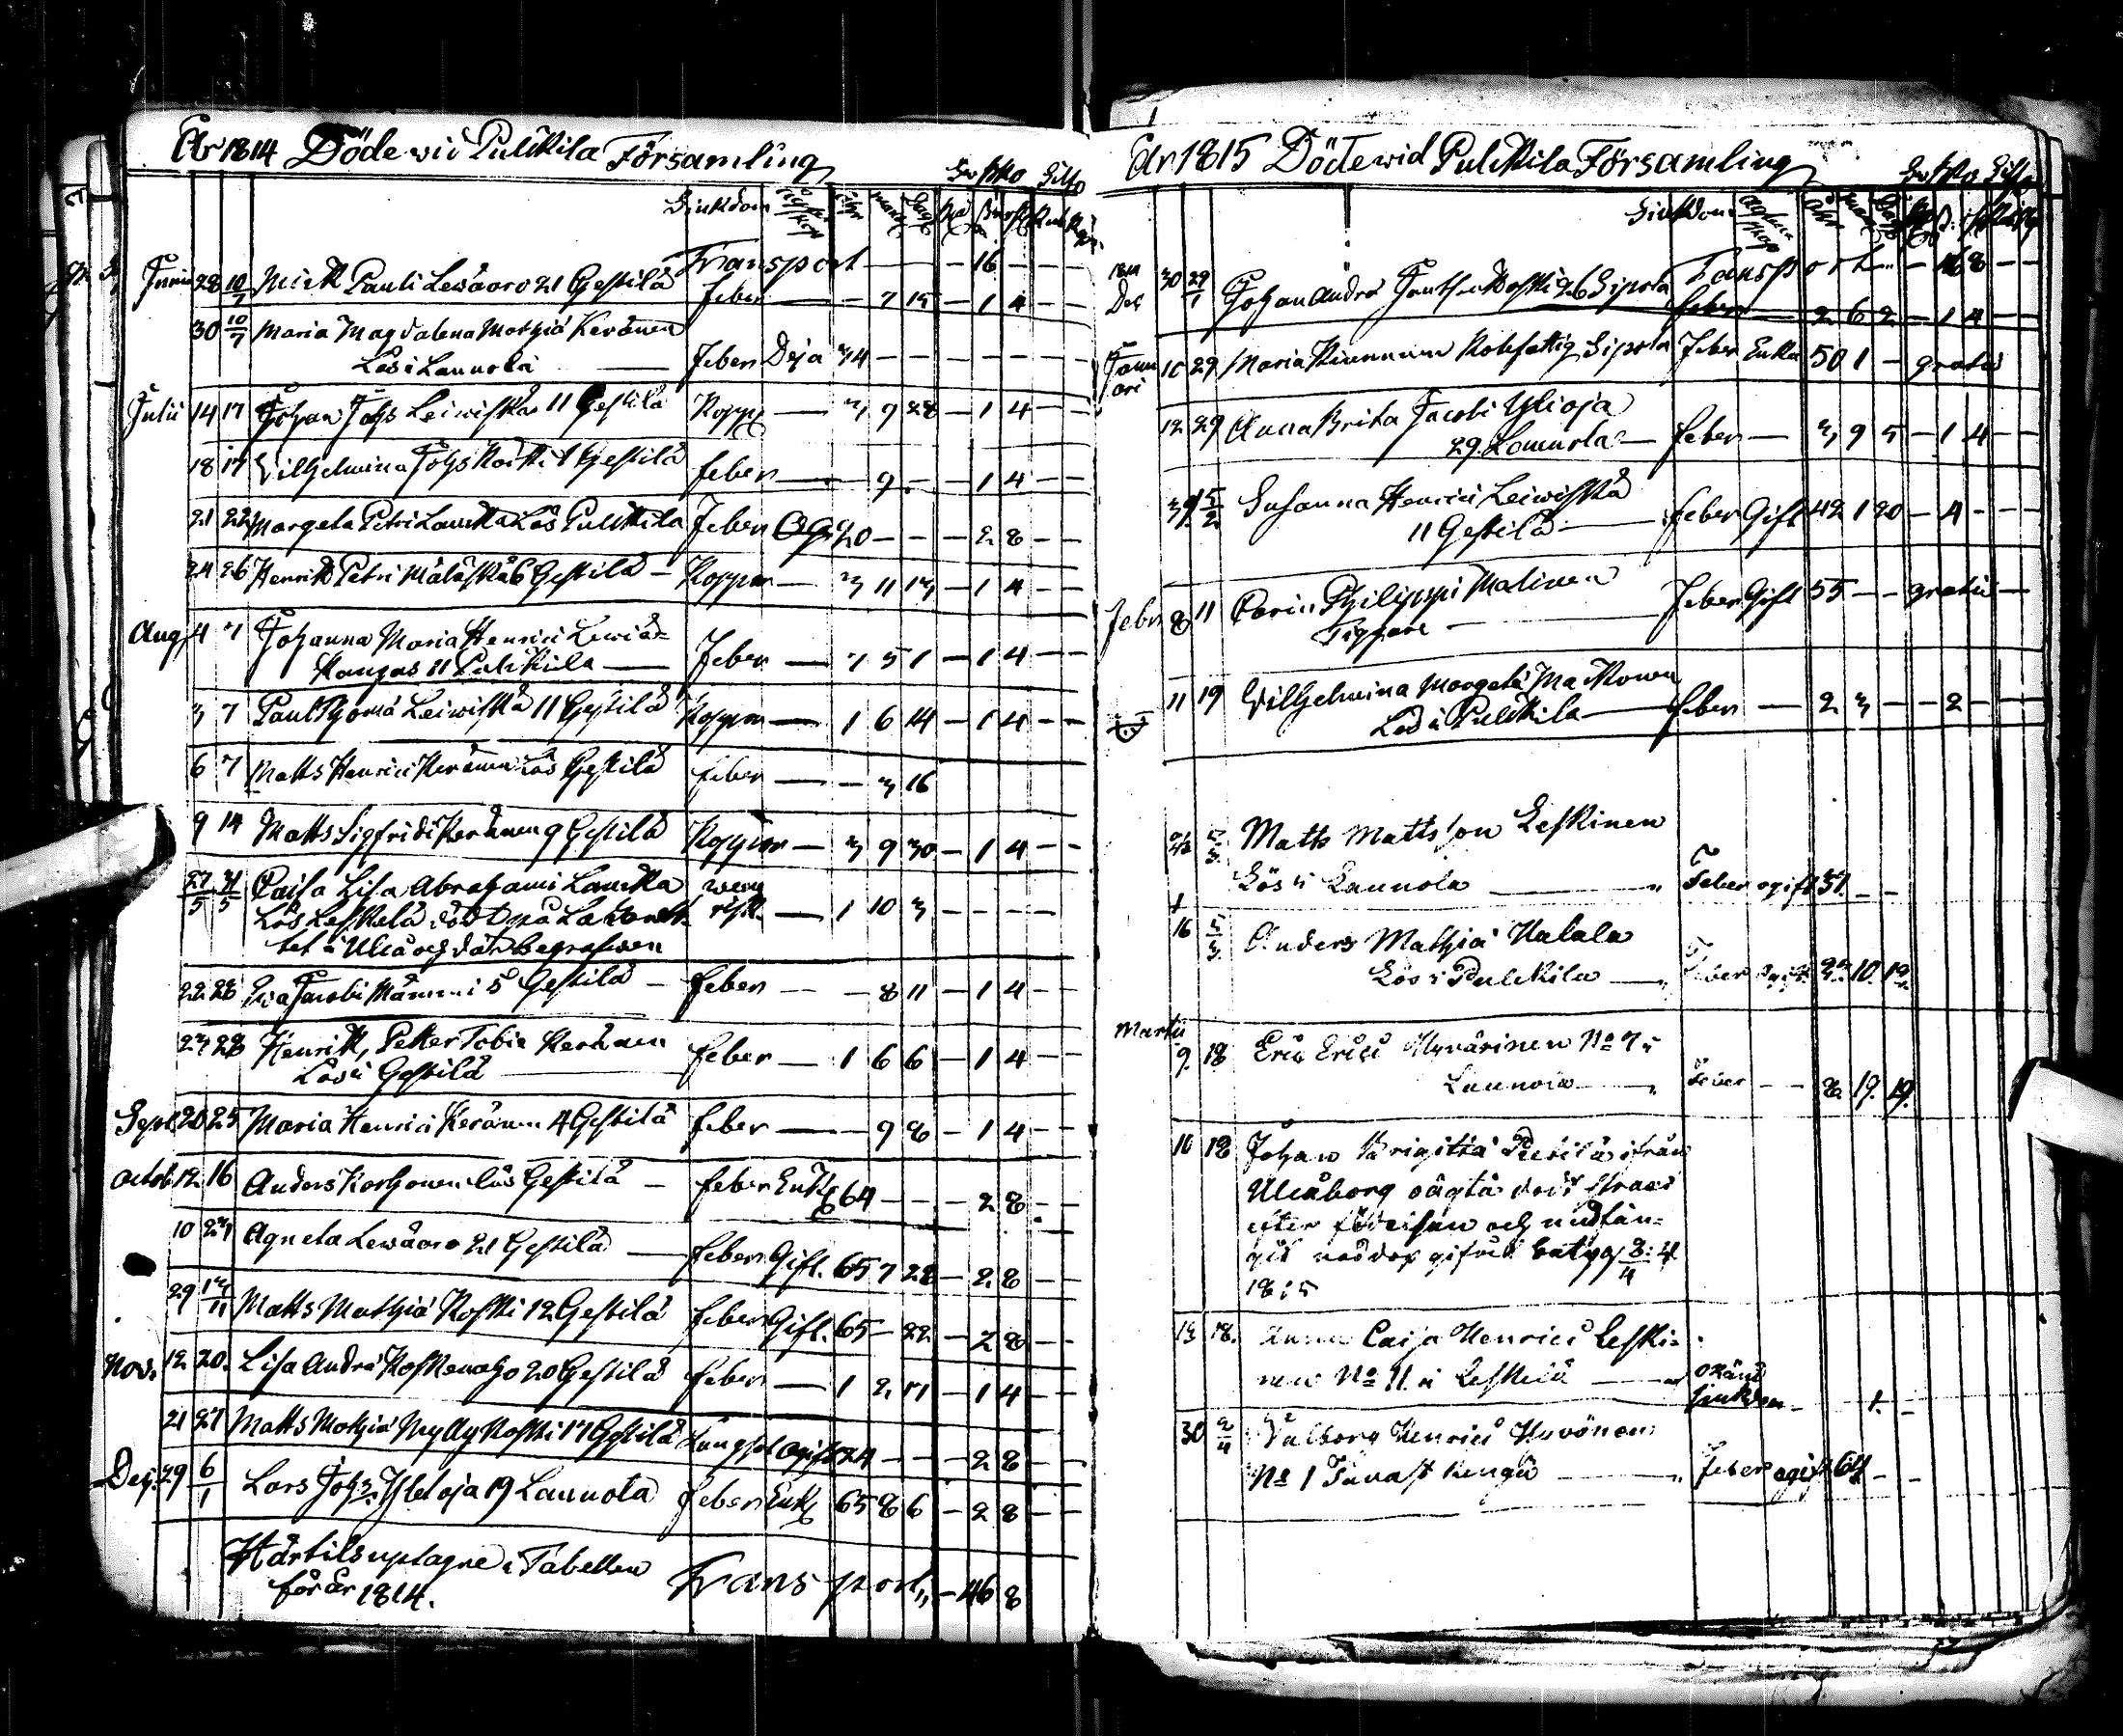 År 1814 Döde wid Pulkkila Församling
Sw Bko Silfr
Siukdom
Transport — — 16 — — —
Junii 28 10/7 Mick Pauli Lewäoro 21 Gestilä Feber — — 7 15 — 1 4 — —
30 10/7 Maria Magdalena Mathiæ Keränen
Lös i Launola — Feber Deja 34 — — — — — — —
Julii 14 17 Johan Johs Leiwiskä 11 Gestilä Koppr — 3 9 28 — 1 4 — —
18 17 Wilhelmina Johs Koski 1 Gestilä feber — — 9 — — 1 4 — —
21 22 Margeta Petri Laurikka Lös Pulkkila Feber Og. 20 — — — 2 8 — —
24 26 Henrik Petri Mäläskä 6 Gestilä — Koppor — 3 11 13 — 1 4 — —
Aug 4 7 Johanna Maria Henrici Lewiä=
Kangas 11 Pulkkila — Feber — 7 5 1 — 1 4 — —
3 7 Paul Thomæ Leiwiskä 11 Gestilä Koppor — 1 6 14 — 1 4 — —
6 7 Matts Henrici Keränen Lös Gestilä feber — — 3 16
9 14 Matts Sigfridi Keränen 9 Gestilä Koppor — 3 9 30 — 1 4 — —
27/5 31/5 Caisa Lisa Abrahami Laurikka wener
Lös Leskelä död på Lazaret= risk — 1 10 3 — — — —
tet i Uleå och där begrafwen
22 28 Ewa Jacobi Mämmi 5 Gestilä — feber — — 8 11 — 1 4 — —
23 28 Henrik, Petter Tobiæ Keränen
Lös i Gestilä — feber — 1 6 6 — 1 4 — —
Sept 20 25 Maria Henrici Keränen 4 Gestilä feber — — 9 8 — 1 4 — —
Octob 12 16 Anders Korhonen lös Gestilä — feber Enkl 64 — — — 2 8 — —
10 23 Agneta Lewäoro 21 Gestilä — feber Gift. 65 7 28 — 2 8 — —
29 13/11 Matts Mathiæ Koski 12 Gestilä feber Gift. 65 — 22 — 2 8 — —
Nov. 12 20. Lisa Andræ Koskenaho 20 Gestilä feber — 1 2 11 — 1 4 — —
21 27 Matts Mathiæ Myllykoski 17 Gestilä Lungsot ogift 24 — — — 2 8 — —
Dec. 29 6/1 Lars Johs Ylioja 19 Launola feber Enkl 65 8 6 — 2 8 — —
Härtils uptagne i Tabellen
för År 1814. Transport,, — 46 8
År 1815 Döde wid Pulkkila Församling
Sw Bko Silfr
Siukdom
Transport — — 46 8 — —
1814
Dec 30 29/1 Johan Andræ 26 Sipola feber — 2 6 2 — 1 4 — —
Janu
ari 10 29 Maria Kinnunen Rotefattig Sipola Feber Enka 50 1 — gratis
12 29 Anna Brita Jacobi Ylioja
29. Launola — feber — 3 9 5 — 1 4 — —
31 5/2 Susanna Henrici Leiwiskä
11 Gestilä — feber Gift 42 1 20 — 4 — — —
Febr 8 11 Carin Philippi Matinen
Tiggare — Feber Gift 55 — — gratis —
11 19 Wilhelmina Margetæ Markkonen
Lös i Pulkkila — feber — 2 3 — — 2 — —
5/3 Matts Matts'son Leskinen
Lös i Launola — " Feber ogift 31. — —
16 5/3 Anders Mathiæ Halala
Lös i Pulkkila — " Feber ogift 23. 10. 12.
Martii
9. 18 Eric Erici Hyvärinen No 7 i
Launola — " Feber — — 2. 19.
10 18 Johan Brigittæ ifrån
Uleåborg oägta död straxt
efter födelsen och undfån=
git nöddop 2/4
1815
13 18. Anna Caisa Henrici Leski=
nen No 11. i Leskelä — " okänd
siukdom — 1. —
30 2/4 Walborg Henrici Huvönen
No 1 Tavastkenga — " Feber ogift 64 — —